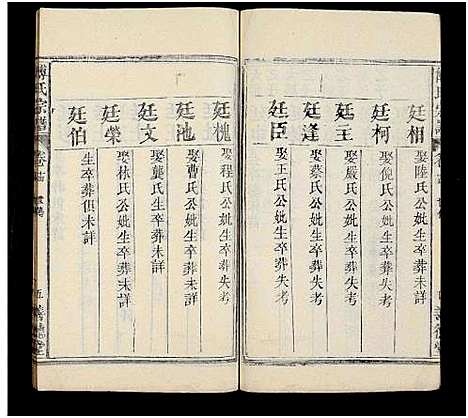 廷相
娶陸氏公妣生卒葬失考
廷柯
娶倪氏公妣生卒葬失考
廷王
娶嚴氏公妣生卒葬失考
廷逢
娶蔡氏公妣生卒葬失考
廷臣
娶王氏公妣生卒葬失考
廷槐
娶程氏公妣生卒葬失考
廷池
娶曹氏公妣生卒葬未詳
廷文
娶龔氏生卒葬未詳
廷榮
娶林氏公妣生卒葬未詳
廷伯
生卒葬俱未詳
傅氏宗譜
五